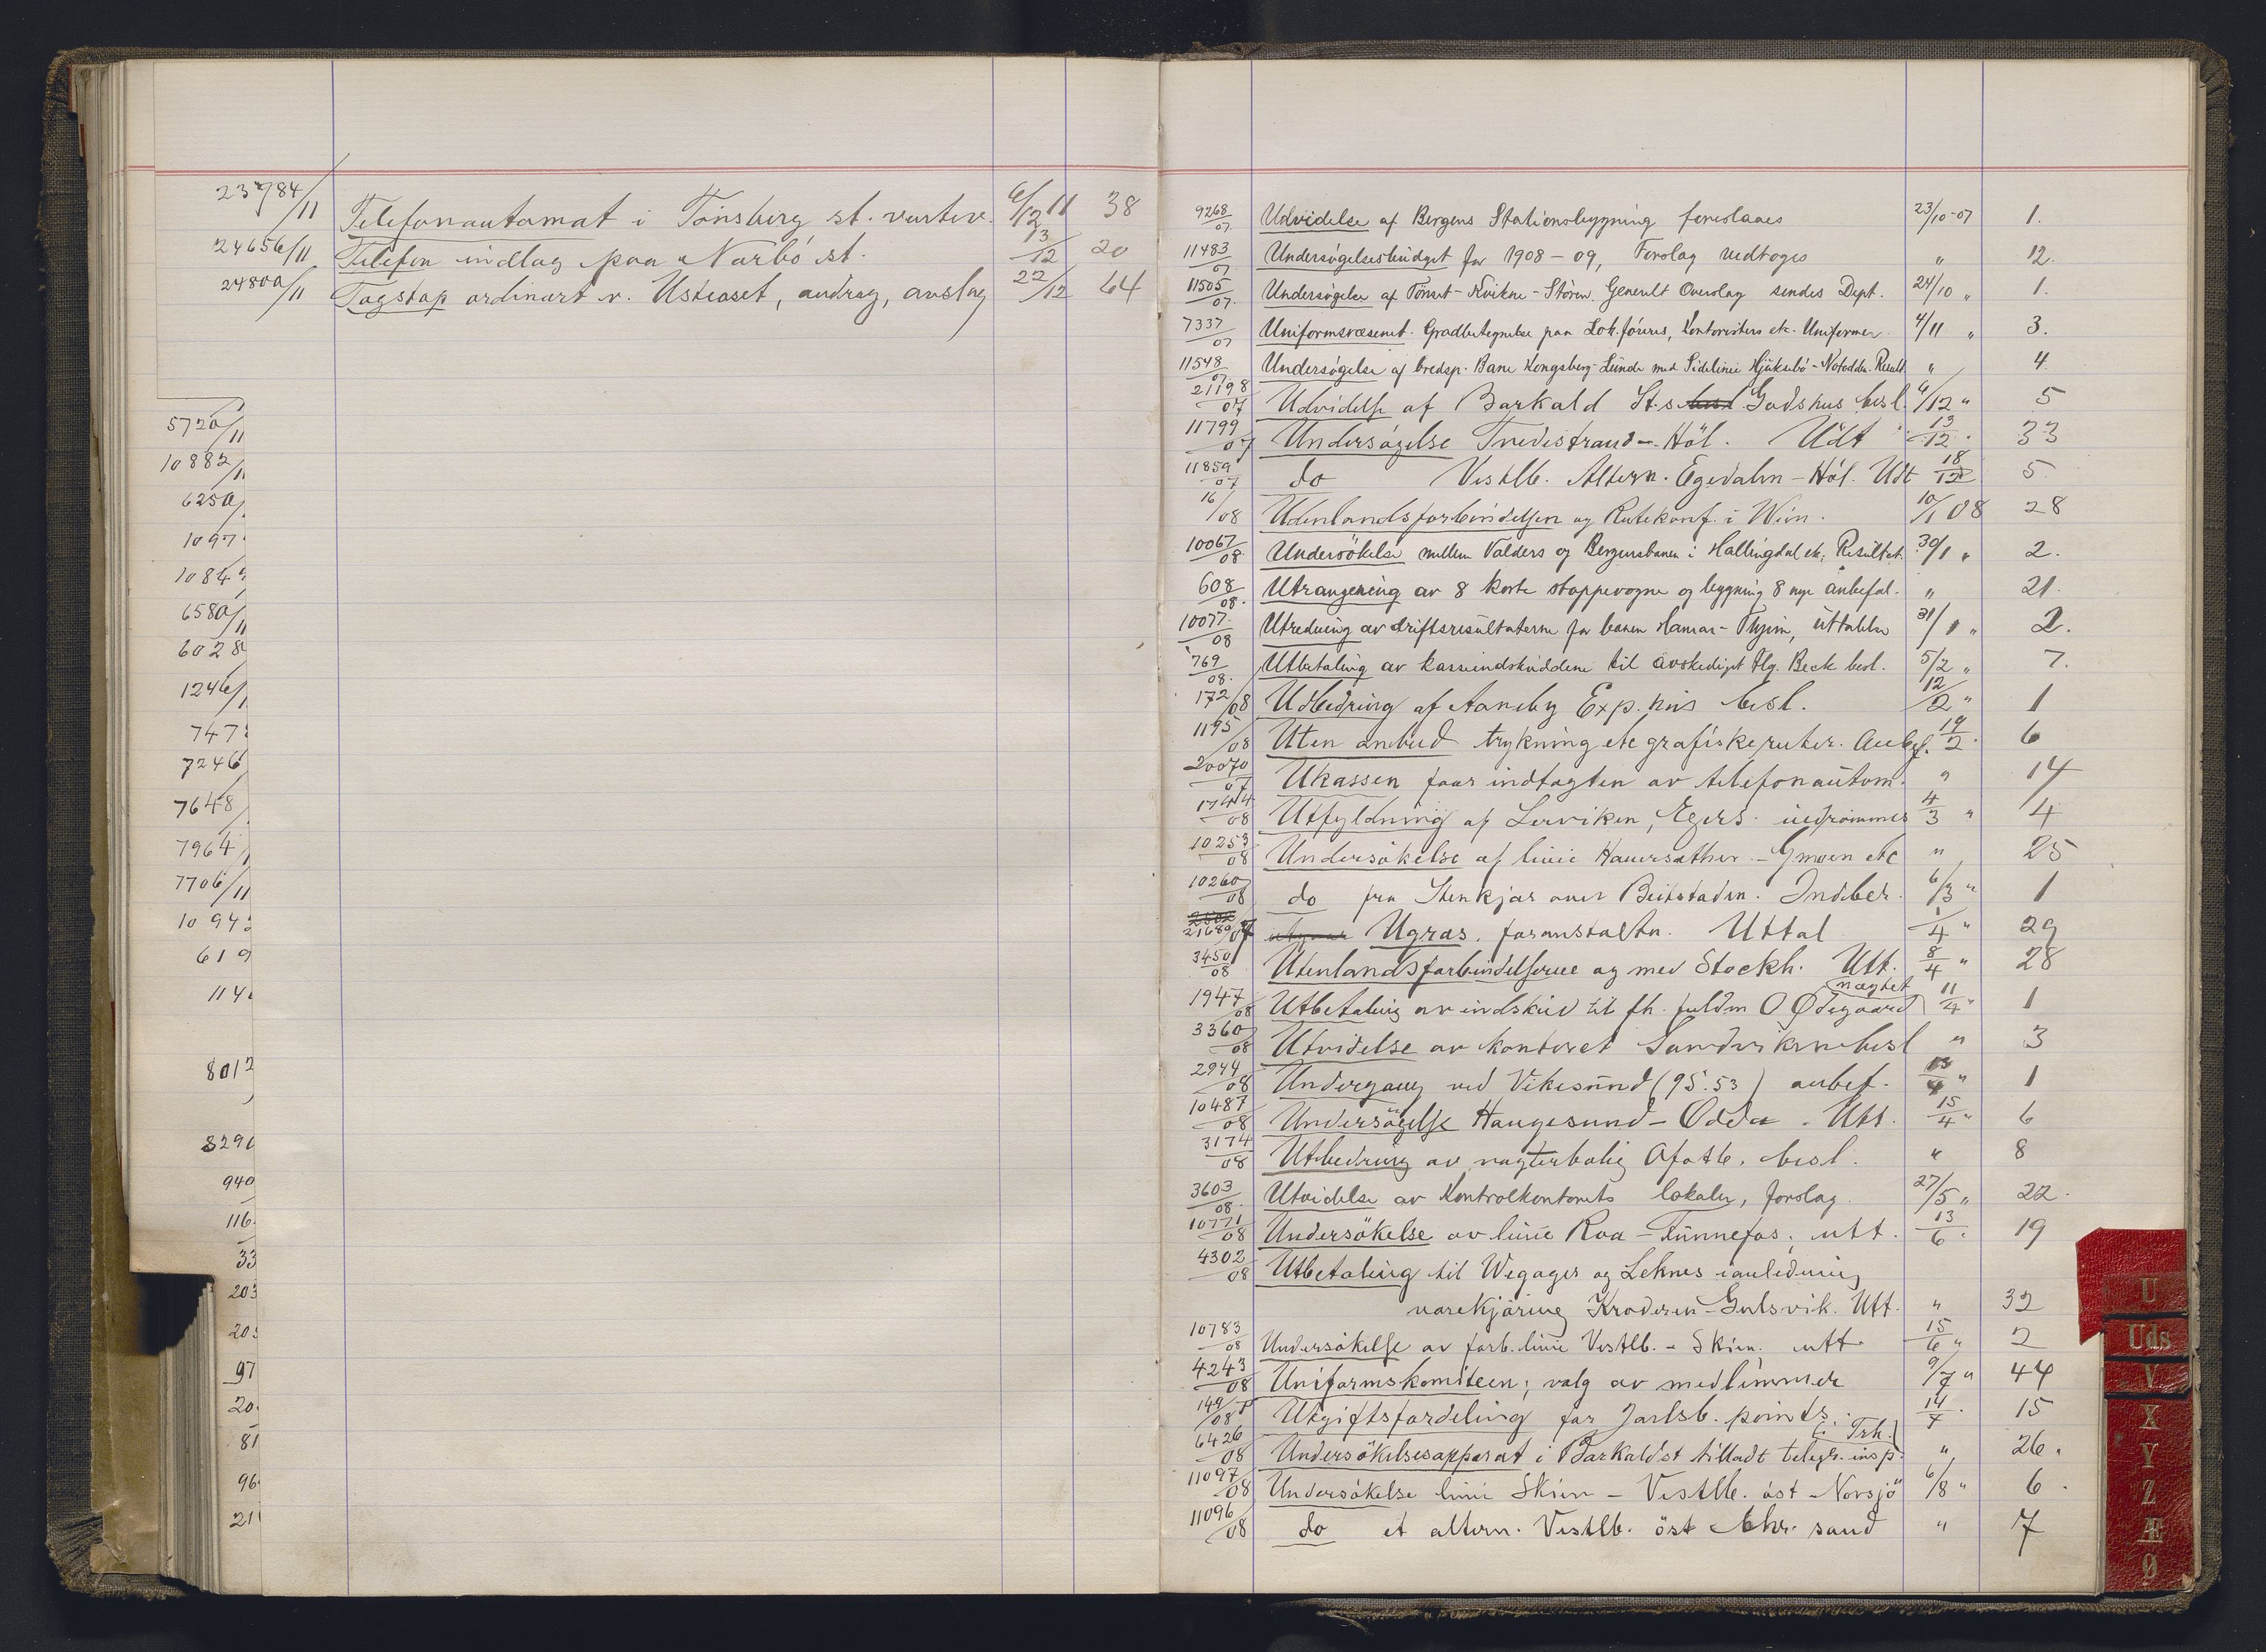 23984/11 Telefonautomat i Tönsberg st. vestev. 6/12 11 38
24656/11 Telefon indlag paa Narbö st. 13/12 20
24800/11 Togstop ordinært v. Usteoset, andrag, avslag 22/12 64
5720/11
10882/11
6250/
1097
1084
6580/11
6028
1246/1
747
7246
7648/
7964/
7706/11
1094
619
114
8012
8290
940
116
33
203
20
97
20
81
96
21
9268/07 Udvidelse af Bergens Stationsbygning foreslaaes 23/10-07 1.
11483/07 Undersøgelsesbudget for 1908-09, Forslag vedtoges " 12.
11505/07. Undersøgelse af Tönset-Kvikne-Stören. Generelt Overslag sendes Dept. 24/10 " 1.
7337/07 Uniformsvæsenet. Gradbetegnelse paa Lok.föreres, Kontoristers etc. Uniformer 4/11 " 3.
11548/07. Undersøgelse af bredsp. Bane Kongsberg-Lunde med Sidelinie Hjuksebö-Notodden. Result. " 4.
21198/07 Udvidelse af Barkald St.s Godshus besl. 4/12 " 5
11799/07 Undersögelse Tvedestrand-Höl. Udt " 13/12. 33
11859/07 do Vestlb. Altern. Egedalen-Höl. Udt 18/12 5
16/08 Udenlandsforbindelsen og Rutekonf. i Wien. 10/1 08 28
10067/08 Undersökelse mellem Valders og Bergensbanen i Hallingdal etc; Resultat. 30/1 " 2.
608/08. Utrangering av 8 korte stoppevogne og bygning 8 nye anbefal. " 21.
10077./08 Utredning av driftsresultaterne for banen Hamar-Thjem, uttalelse 31/1 " 2.
769/08. Utbetaling av kasseindskuddene til avskediget tlg. Beck besl. 5/2 " 7.
172/08 Udbedring af Aaneby Exp.hus besl. 12/2 " 1
1195/08 Uten anbud trykning etc grafiske ruter. Anbef. 19/2. 6
20070/07 Ukassen faar indtægten av telefonautom. " 14
1744/08 Utfyldning af Lerviken, Egers. indrömmes 4/3 " 4
10253/08 Undersökelse af linie Hauersæther-Gmoen etc " 25
10260/08 do fra Stenkjær over Beitstaden. Indber. 6/3 " 1
21680/07 Ugras, foranstaltn. Uttal 1/4 " 29
3450/08 Utenlandsforbindelserne og med Stockh. Utt. 8/4 " 28
1947/08 Utbetaling av indskud til fh. fuldm O Ødegaard nægtet 11/4 " 1
3360/08 Utvidelse av kontoret Sandviken besl " 3
2944/08 Undergang ved Vikesund (95.53) anbef. 13/4 " 1
10487/08 Undersögelse Haugesund-Odda. Utt. 15/4 " 6
3174/08 Utbedring av vagterbolig Ofotb. besl. " 8
3603/08. Utvidelse av Kontrolkontorets lokaler, forslag. 27/5 " 22.
10771/08 Undersökelse av linie Roa-Funnefos; utt. 13/6. 19
4302/08 Utbetaling til Wegager og Leknes i anledning
varekjöring Kröderen-Gulsvik. Utt. " 32
10783/08 Undersökelse av forb.linie Vestlb.-Skien. utt. 15/6 " 2
4243/08 Uniformskomiteen; valg av medlemmer 9/7 " 44
149 P/08 Utgiftsfordeling for Jarlsb. points. 14/7. 15
6426/08 Undersökelsesapparat i Barkald st tilladt telegr. insp. i Trh. " 26.
11097/08 Undersökelse linie Skien-Vestlb. öst Norsjö 6/8 " 6.
11096/08 do et altern. Vestlb. öst Chr.sand " 7
U
Uds
V
X
Y
Z
Æ
Ø